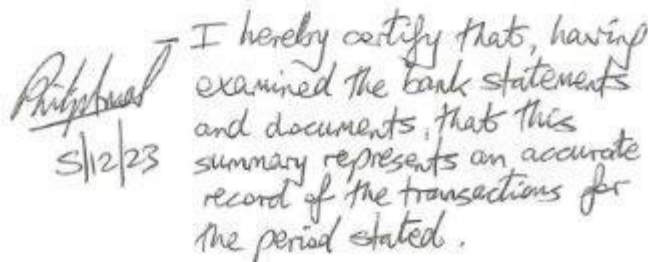 I hereby certify that, having
examined the bank statements
and documents, that this
summary represents an accurate
record of the transactions for
the period stated.
5/12/23